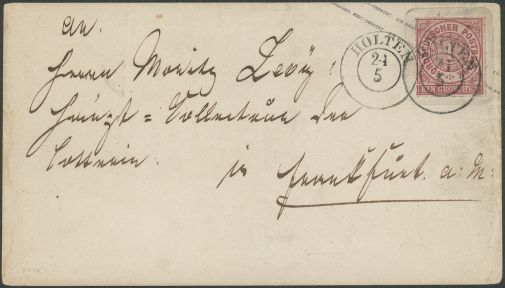 HOLTEN
24
5
NORDDEUTSCHER POSTBEZIRK
EIN GROSCHEN
An
Herrn Moritz Levy
Haupt=Collecteur der
Lotterie
in Frankfurt a. M.